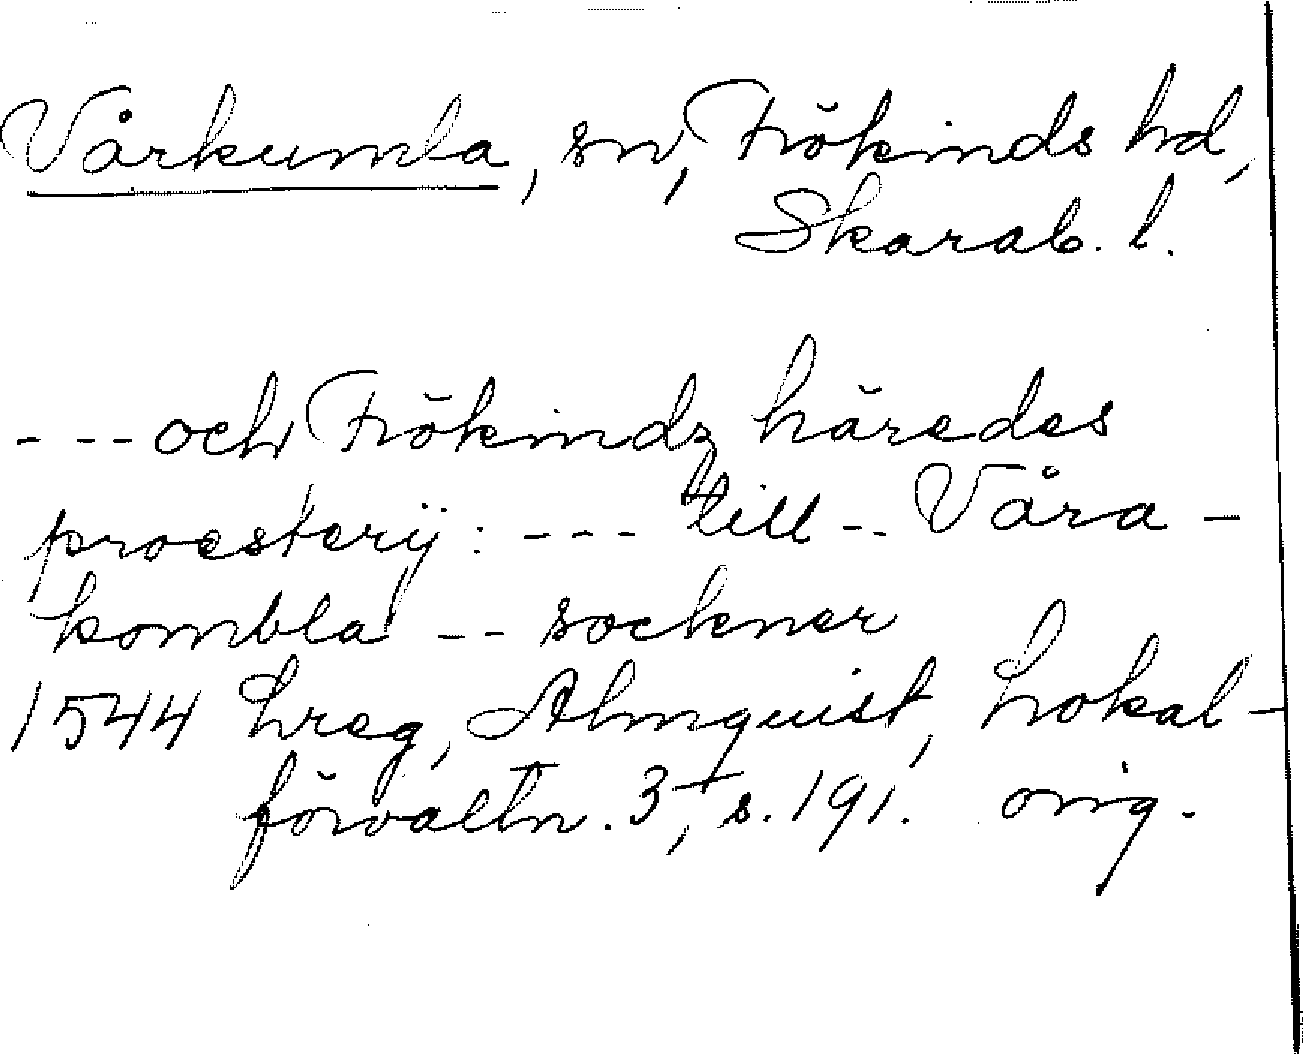 Vårkumla, sn, Frökinds hd,
Skarab. l.
--- och Frökindz häredes
proesterij: --- till -- Våra-
kombla -- sockner
1544 Lreg, Almquist, Lokal-
förvaltn. 3, s. 191. orig.